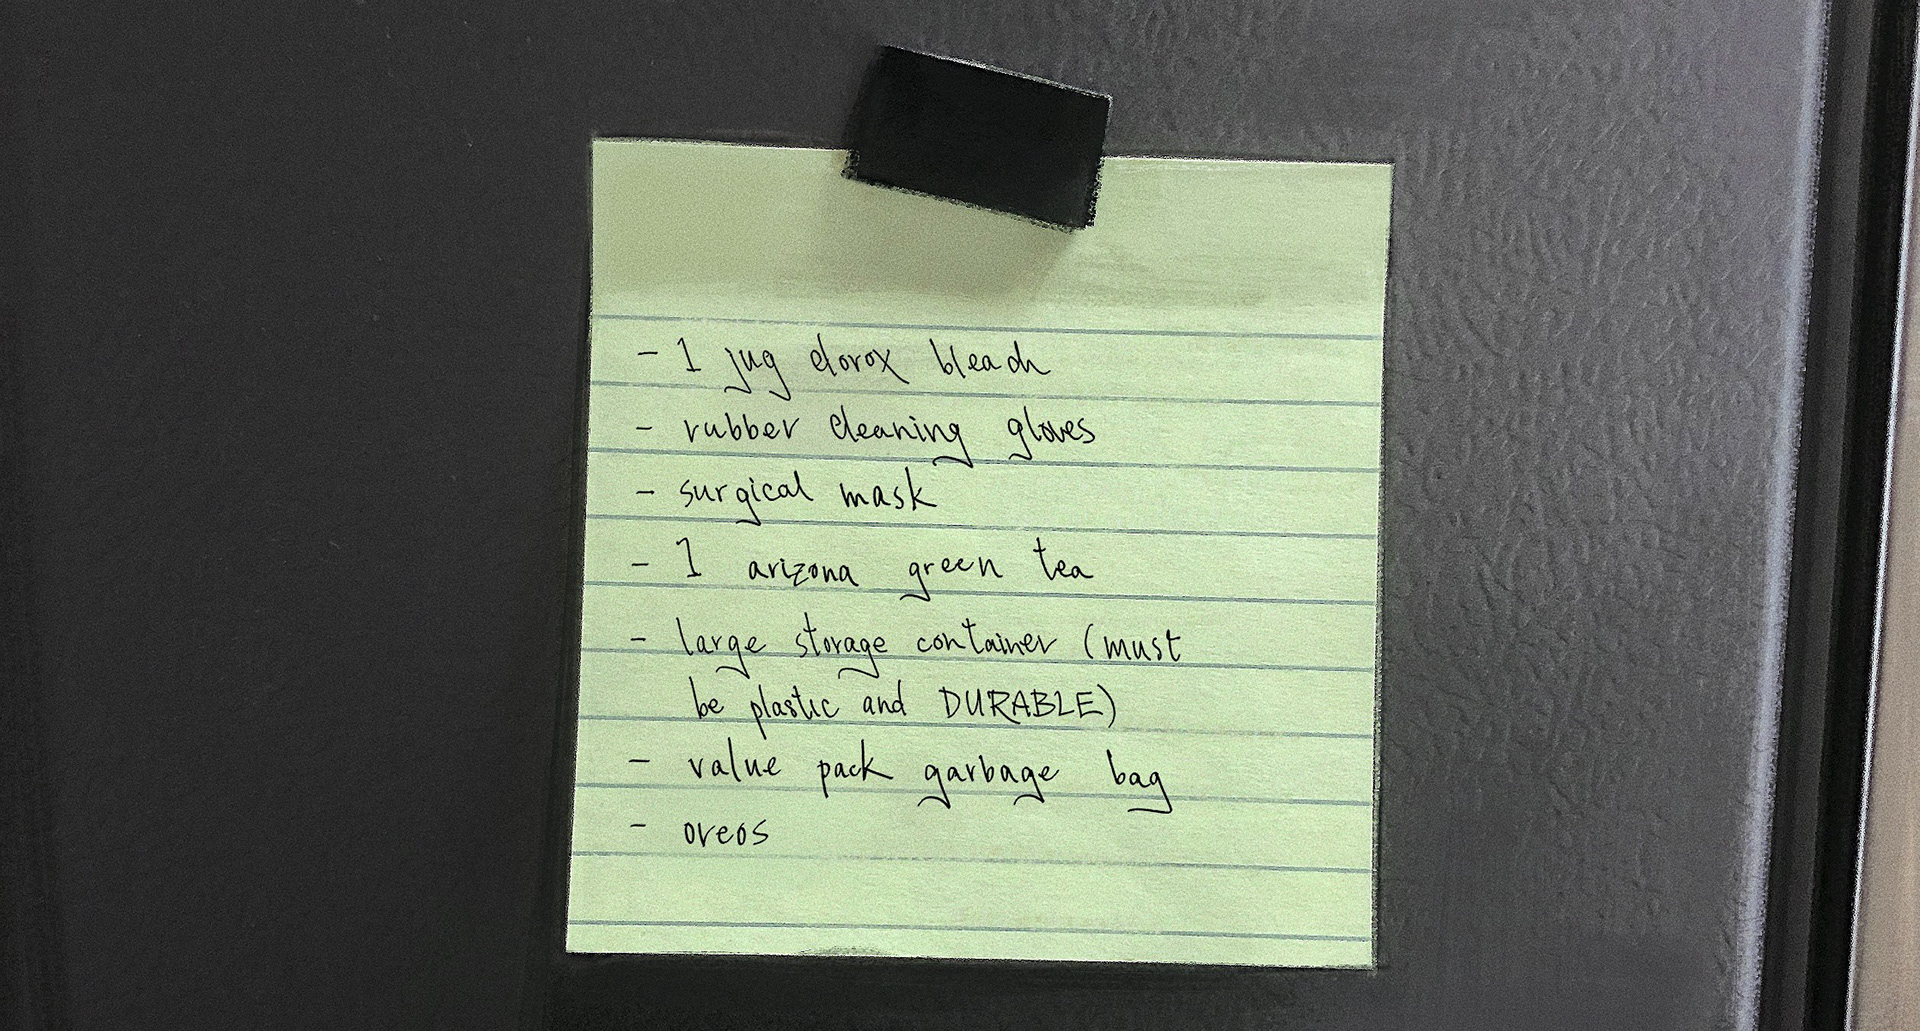 - 1 jug clorox bleach
- rubber cleaning gloves
- surgical mask
- 1 arizona green tea
- large storage container (must
be plastic and DURABLE)
- value pack garbage bag
- oreos